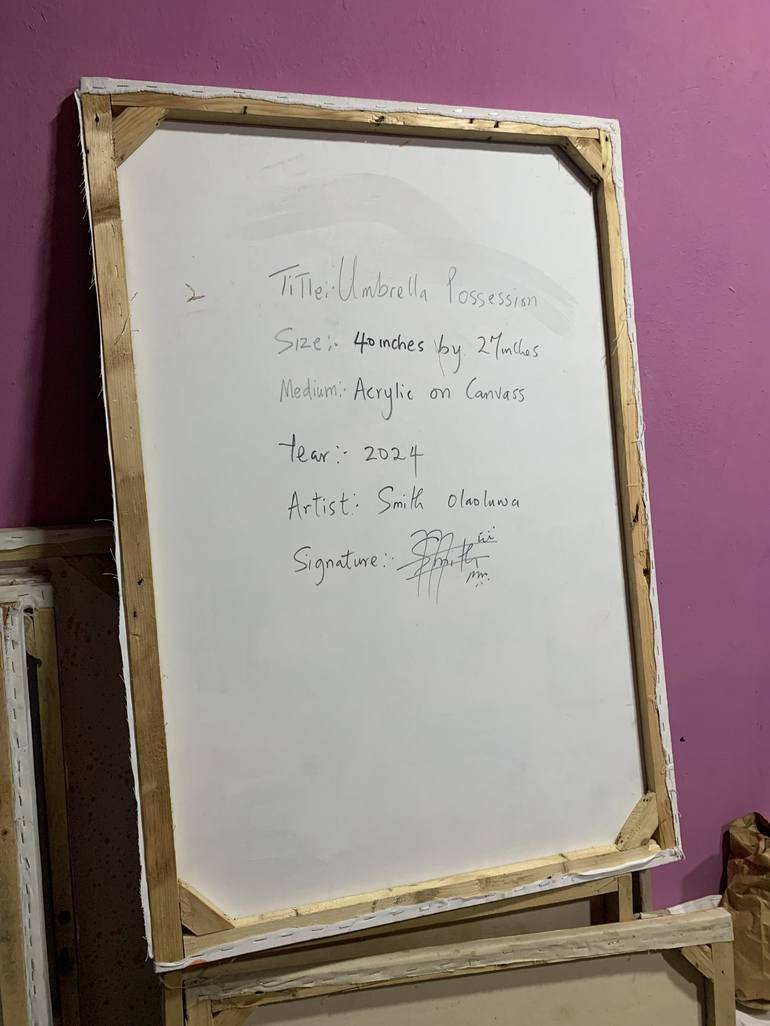 2
Title:- Umbrella Possession
Size:- 40inches by 27inches
Medium:- Acrylic on Canvass
Year:- 2024
Artist:- Smith Olaoluwa
Signature:- Smith